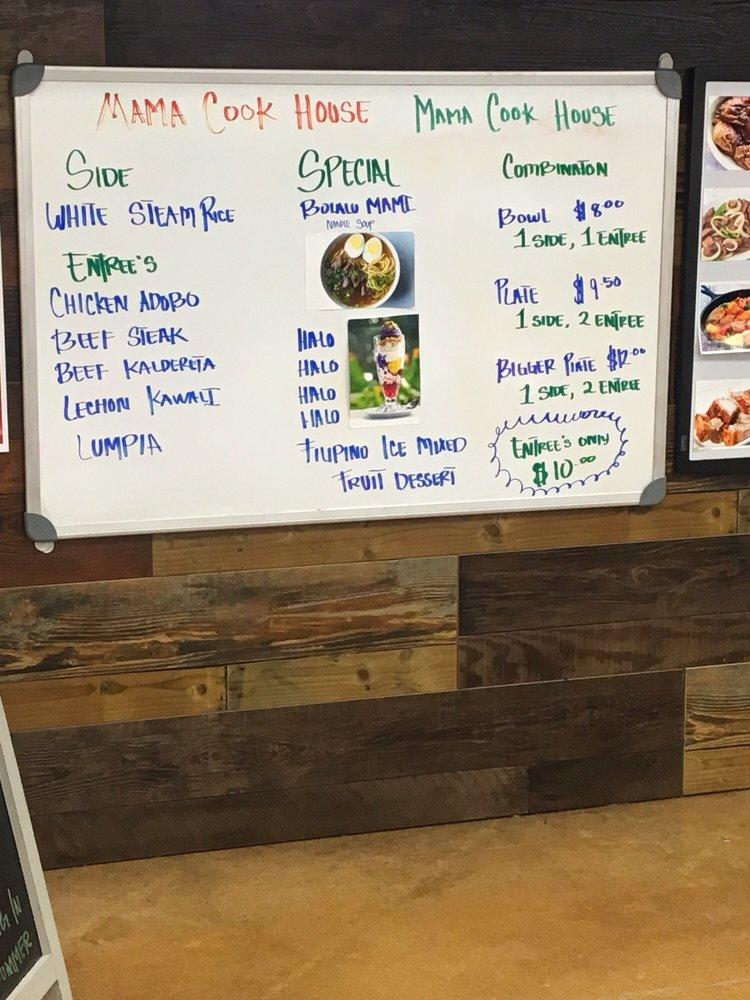 MAMA COOK HOUSE MAMA COOK HOUSE
SIDE
WHITE STEAM RICE
ENTREE'S
CHICKEN ADOBO
BEEF STEAK
BEEF KALDERETA
LECHON KAWALI
LUMPIA
SPECIAL
BULALU MAMI
NOODLE SOUP
HALO
HALO
HALO
HALO
FILIPINO ICE MIXED
FRUIT DESSERT
COMBINATON
BOWL $8.00
1 SIDE, 1 ENTREE
PLATE $9.50
1 SIDE, 2 ENTREE
BIGGER PLATE $12.00
1 SIDE, 2 ENTREE
ENTREE'S ONLY
$10.00
IN